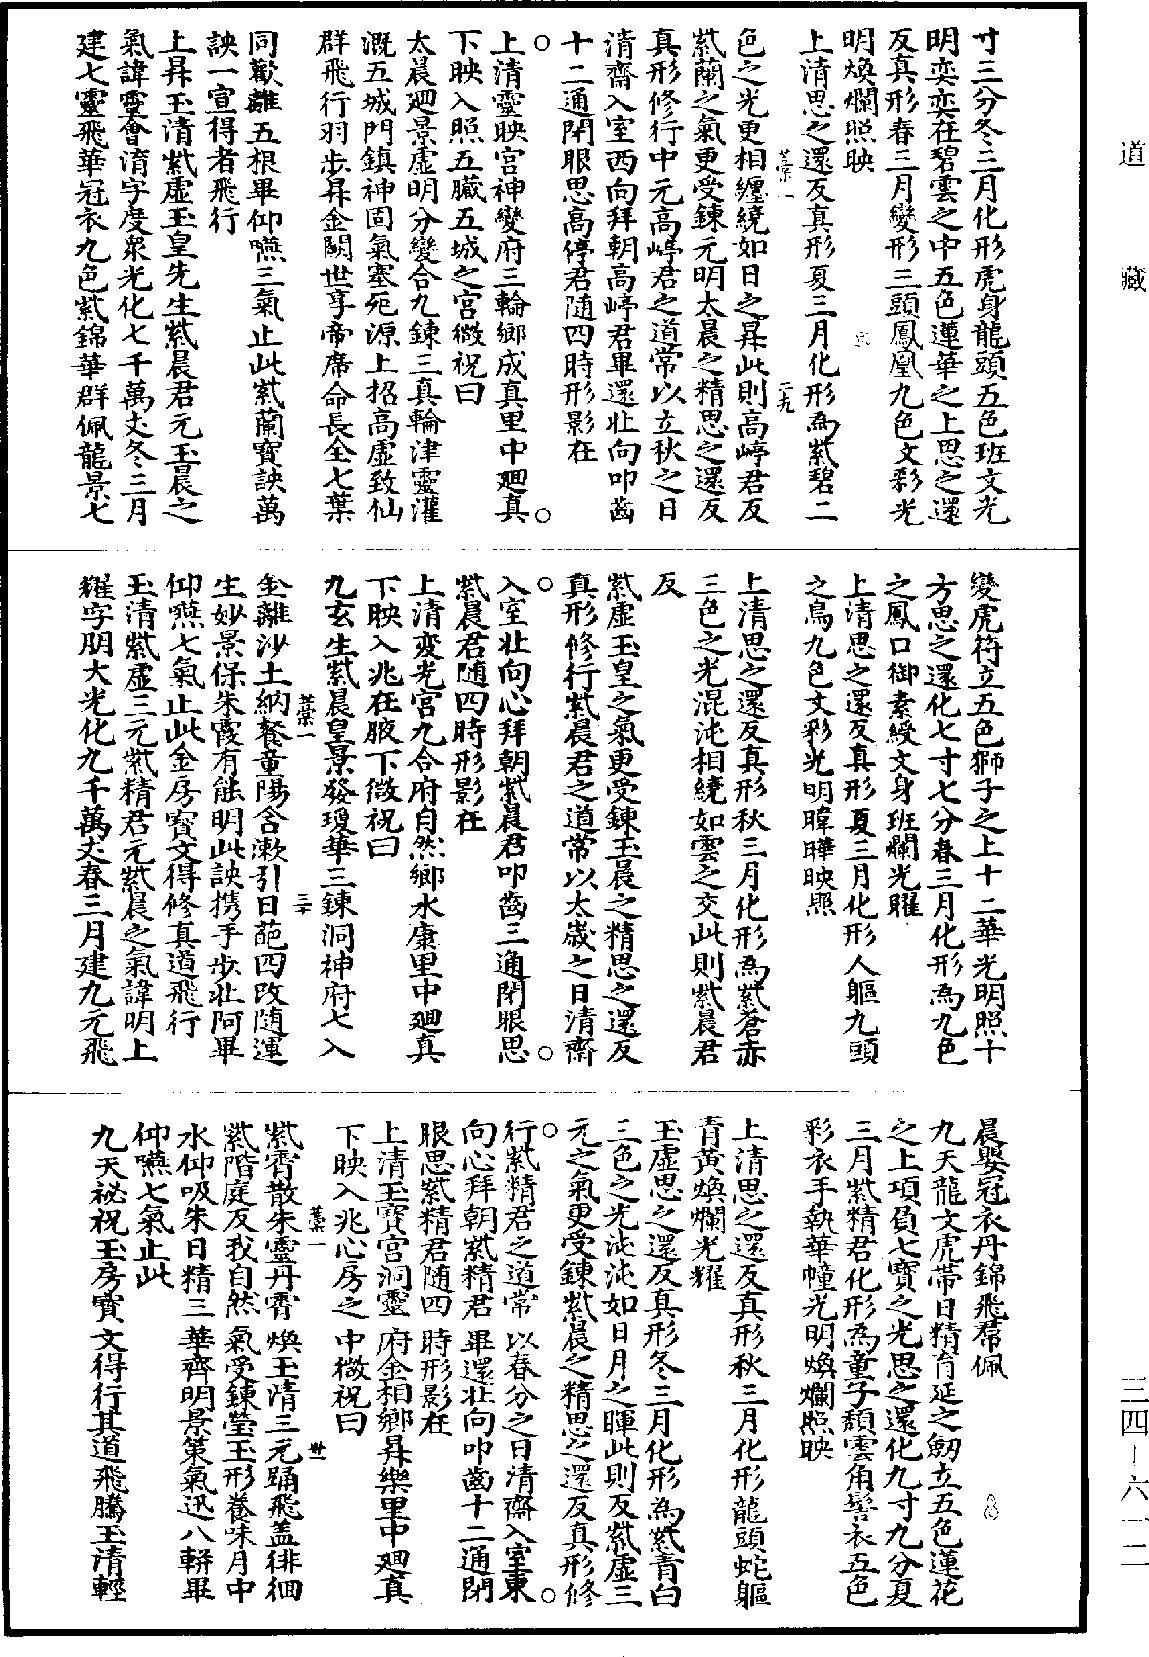 寸三分冬三月化形虎身龍頭五色班文光
明奕奕在碧雲之中五色蓮華之上思之還
反真形春三月變形三頭鳳凰九色文彩光
明煥爛照映
上清思之還反真形夏三月化形為紫碧二
色之光更相纏繞如日之昇此則高崢君反
紫蘭之氣更受鍊元明太晨之精思之還反
真形修行中元高崢君之道常以立秋之日
清齋入室西向拜朝高崢君畢還北向叩齒
十二通閉眼思高停君隨四時形影在
上清靈映宮神變府三輪鄉成真里中廻真
下映入照五臟五城之宮微祝曰
太晨廻景虛明分變合九鍊三真輪津靈灌
溉五城門鎮神固氣塞死源上招高虛致仙
群飛行羽步昇金闕世享帝席命長全七葉
同歡離五根畢仰嚥三氣止此紫蘭寶訣萬
訣一宣得者飛行
上昇玉清紫虛玉皇先生紫晨君元玉晨之
氣諱靈會淯字度眾光化七千萬丈冬三月
建七靈飛華冠衣九色紫錦華群佩龍景七
變虎符立五色獅子之上十二華光明照十
方思之還化七寸七分春三月化形為九色
之鳳口御素綬文身班爛光曜
上清思之還反真形夏三月化形人軀九頭
之鳥九色文彩光明暐曄映照
上清思之還反真形秋三月化形為紫蒼赤
三色之光混沌相繞如雲之交此則紫晨君
反
紫虛玉皇之氣更受鍊玉晨之精思之還反
真形修行紫晨君之道常以太歲之日清齋
入室北向心拜朝紫晨君叩齒三通閉眼思
紫晨君隨四時形影在
上清變光宮九合府自然鄉水康里中廻真
下映入兆在腋下微祝曰
九玄生紫晨皇景發瓊華三鍊洞神府七入
金離沙土納養童陽含漱引日葩四改隨運
生妙景保朱霞有能明此訣携手步北阿畢
仰嚥七氣止此金房寶文得修真道飛行
玉清紫虛三元紫精君元紫晨之氣諱明上
耀字朋大光化九千萬丈春三月建九元飛
晨嬰冠衣丹錦飛帬佩
九天龍文虎帶日精育延之劒立五色蓮花
之上項負七寶之光思之還化九寸九分夏
三月紫精君化形為童子頹雲角髻衣五色
彩衣手執華幢光明煥爛照映
上清思之還反真形秋三月化形龍頭蛇軀
青黃煥爛光耀
玉虛思之還反真形冬三月化形為紫青白
三色之光沌沌如日月之暉此則反紫虛三
元之氣更受鍊紫晨之精思之還反真形修
行紫精君之道常以春分之日清齋入室東
向心拜朝紫精君畢還北向叩齒十二通閉
眼思紫精君隨四時形影在
上清玉寶宮洞靈府金相鄉昇樂里中廻真
下映入兆心房之中微祝曰
紫霄散朱靈丹霄煥玉清三元踊飛蓋徘徊
紫階庭反我自然氣受鍊瑩玉形養味月中
水仰吸朱日精三華齊明景策氣迅八軿畢
仰嚥七氣止此
九天祕祝玉房寶文得行其道飛騰玉清輕
道藏
三四－六一二